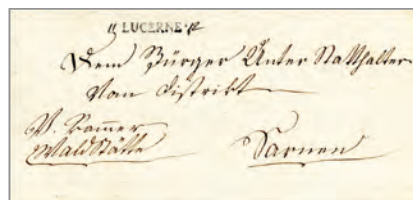 LUCERNE
Dem Bürger Unter Statthalter
Vom Distrikt
Sarnen
WaldStätte